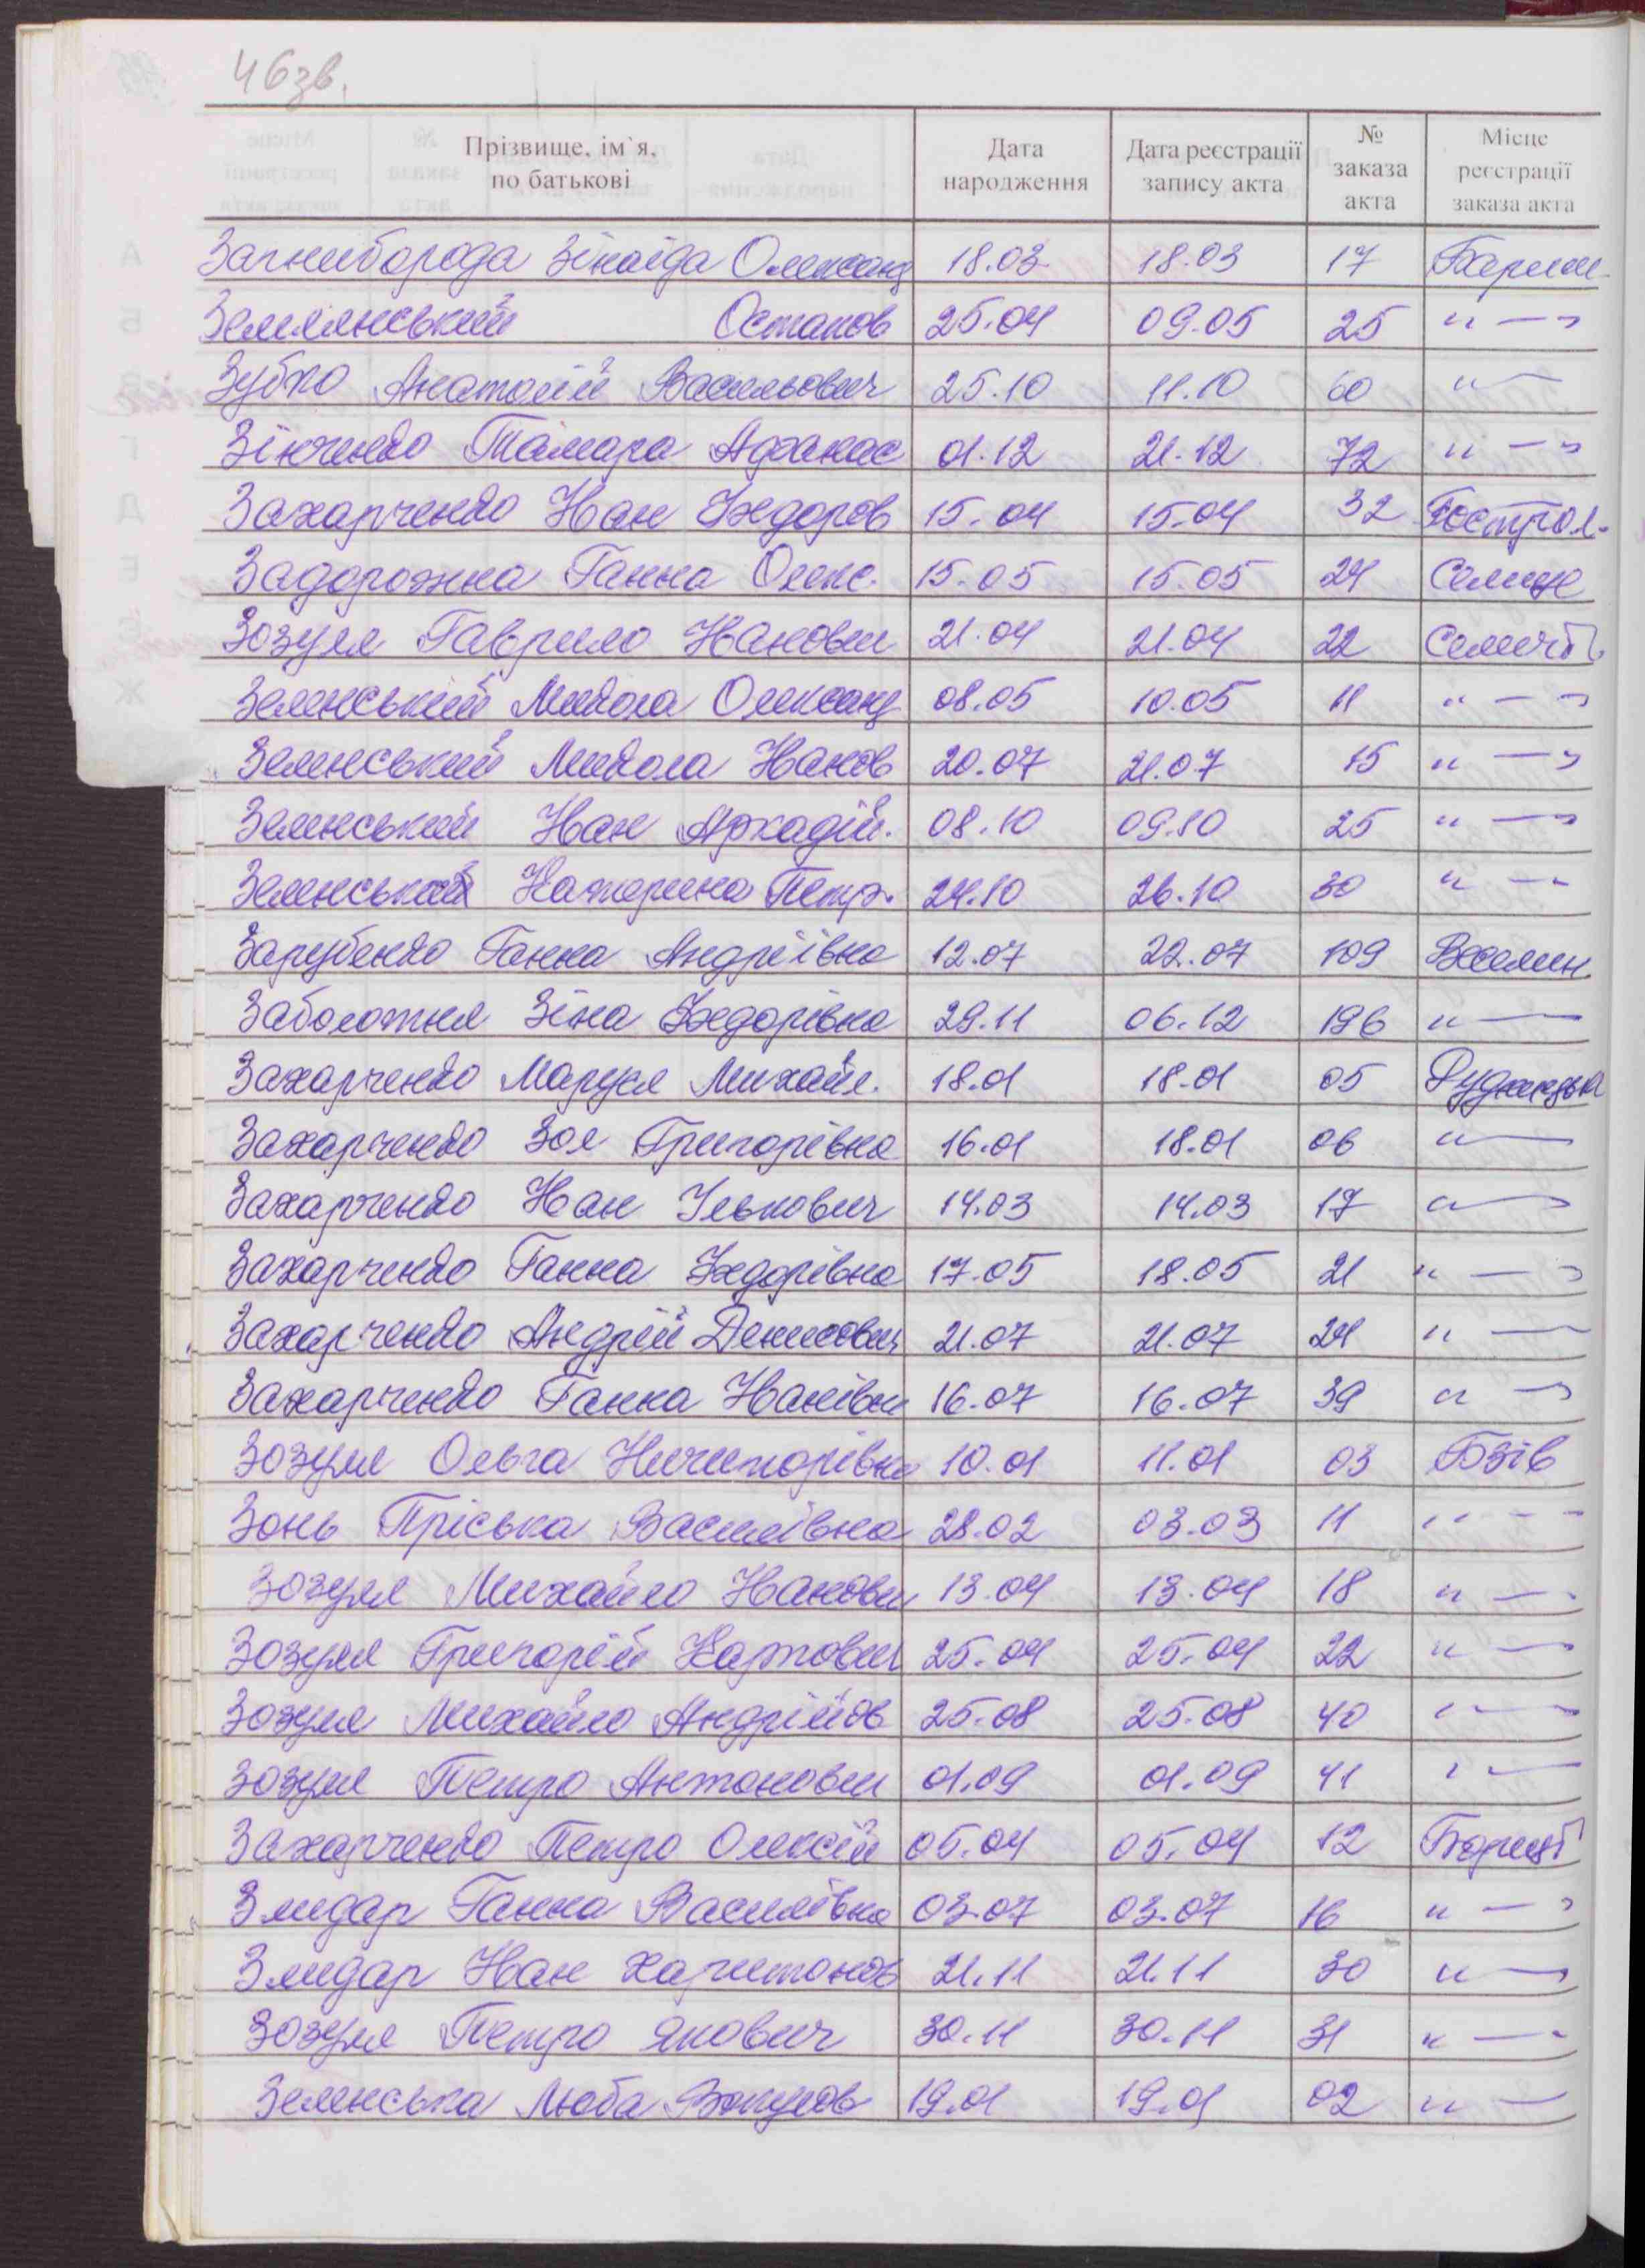 46зв.
Прізвище, ім`я, по батькові Дата народження Дата реєстрації запису акта № заказа акта Місце реєстрації заказа акта
Загниборода Зінаїда Олександ 18.03 18.03 17 Париш
Землянський Остапов 25.04 09.05 25 " — "
Зубко Анатолій Васильович 25.10 11.10 60 " —
Зінченко Тамара Афанас 01.12 21.12 72 " — "
Захарченко Іван Федоров 15.04 15.04 32 Гострол.
Задорожна Ганна Олекс. 15.05 15.05 24 Селище
Зозуля Гаврило Іванович 21.04 21.04 22 Селичів
Зеленський Микола Олександ 08.05 10.05 11 " — "
Зеленський Микола Іванов 20.07 21.07 15 " — "
Зеленський Іван Аркадій. 08.10 09.10 25 " — "
Зеленська Катерина Петр. 24.10 26.10 30 " — "
Зарубенко Ганна Андріївна 12.07 22.07 109 Веселин
Заболотня Зіна Федорівна 29.11 06.12 196 " —
Захарченко Маруся Михайл. 18.01 18.01 05 Рудницьк
Захарченко Зоя Григорівна 16.01 18.01 06 " —
Захарченко Іван Ількович 14.03 14.03 17 " — "
Захарченко Ганна Федорівна 17.05 18.05 21 " — "
Захарченко Андрій Денисович 21.07 21.07 24 " —
Захарченко Ганна Іванівн 16.07 16.07 39 " — "
Зозуля Ольга Ничипорівна 10.01 11.01 03 Бзів
Зонь Пріська Василівна 28.02 03.03 11 " - -
Зозуля Михайло Іванович 13.04 13.04 18 " — "
Зозуля Григорій Карпович 25.04 25.04 22 " — "
Зозуля Михайло Андрійов 25.08 25.08 40 " — "
Зозуля Петро Антонович 01.09 01.09 41 " —
Захарченко Петро Олексій 05.04 05.04 12 Борщів
Злидар Ганна Василівна 03.07 03.07 16 " — "
Злидар Іван Харитонов 21.11 21.11 30 " — "
Зозуля Петро Якович 30.11 30.11 31 " — "
Зеленська Люба 19.01 19.01 02 " —